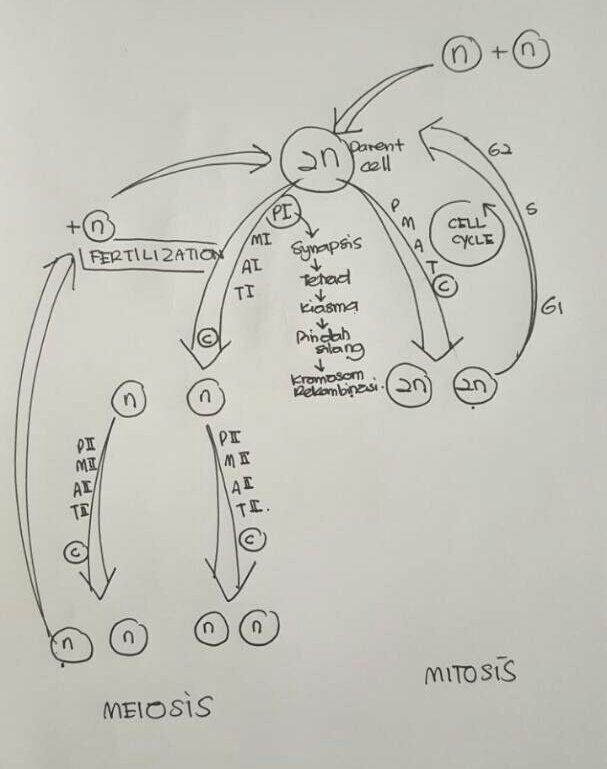 n + n
2n
Parent
cell
G2
S
G1
CELL
CYCLE
P
M
A
T
C
2n 2n
PI
MI
AI
TI
C
Synapsis
Tetrad
Kiasma
Pindah
silang
Kromosom
Rekombinasi.
+ n
FERTILIZATION
n n
PII
MII
AII
TII
C
PII
MII
AII
TII.
C
n n n n
MEIOSIS
MITOSIS